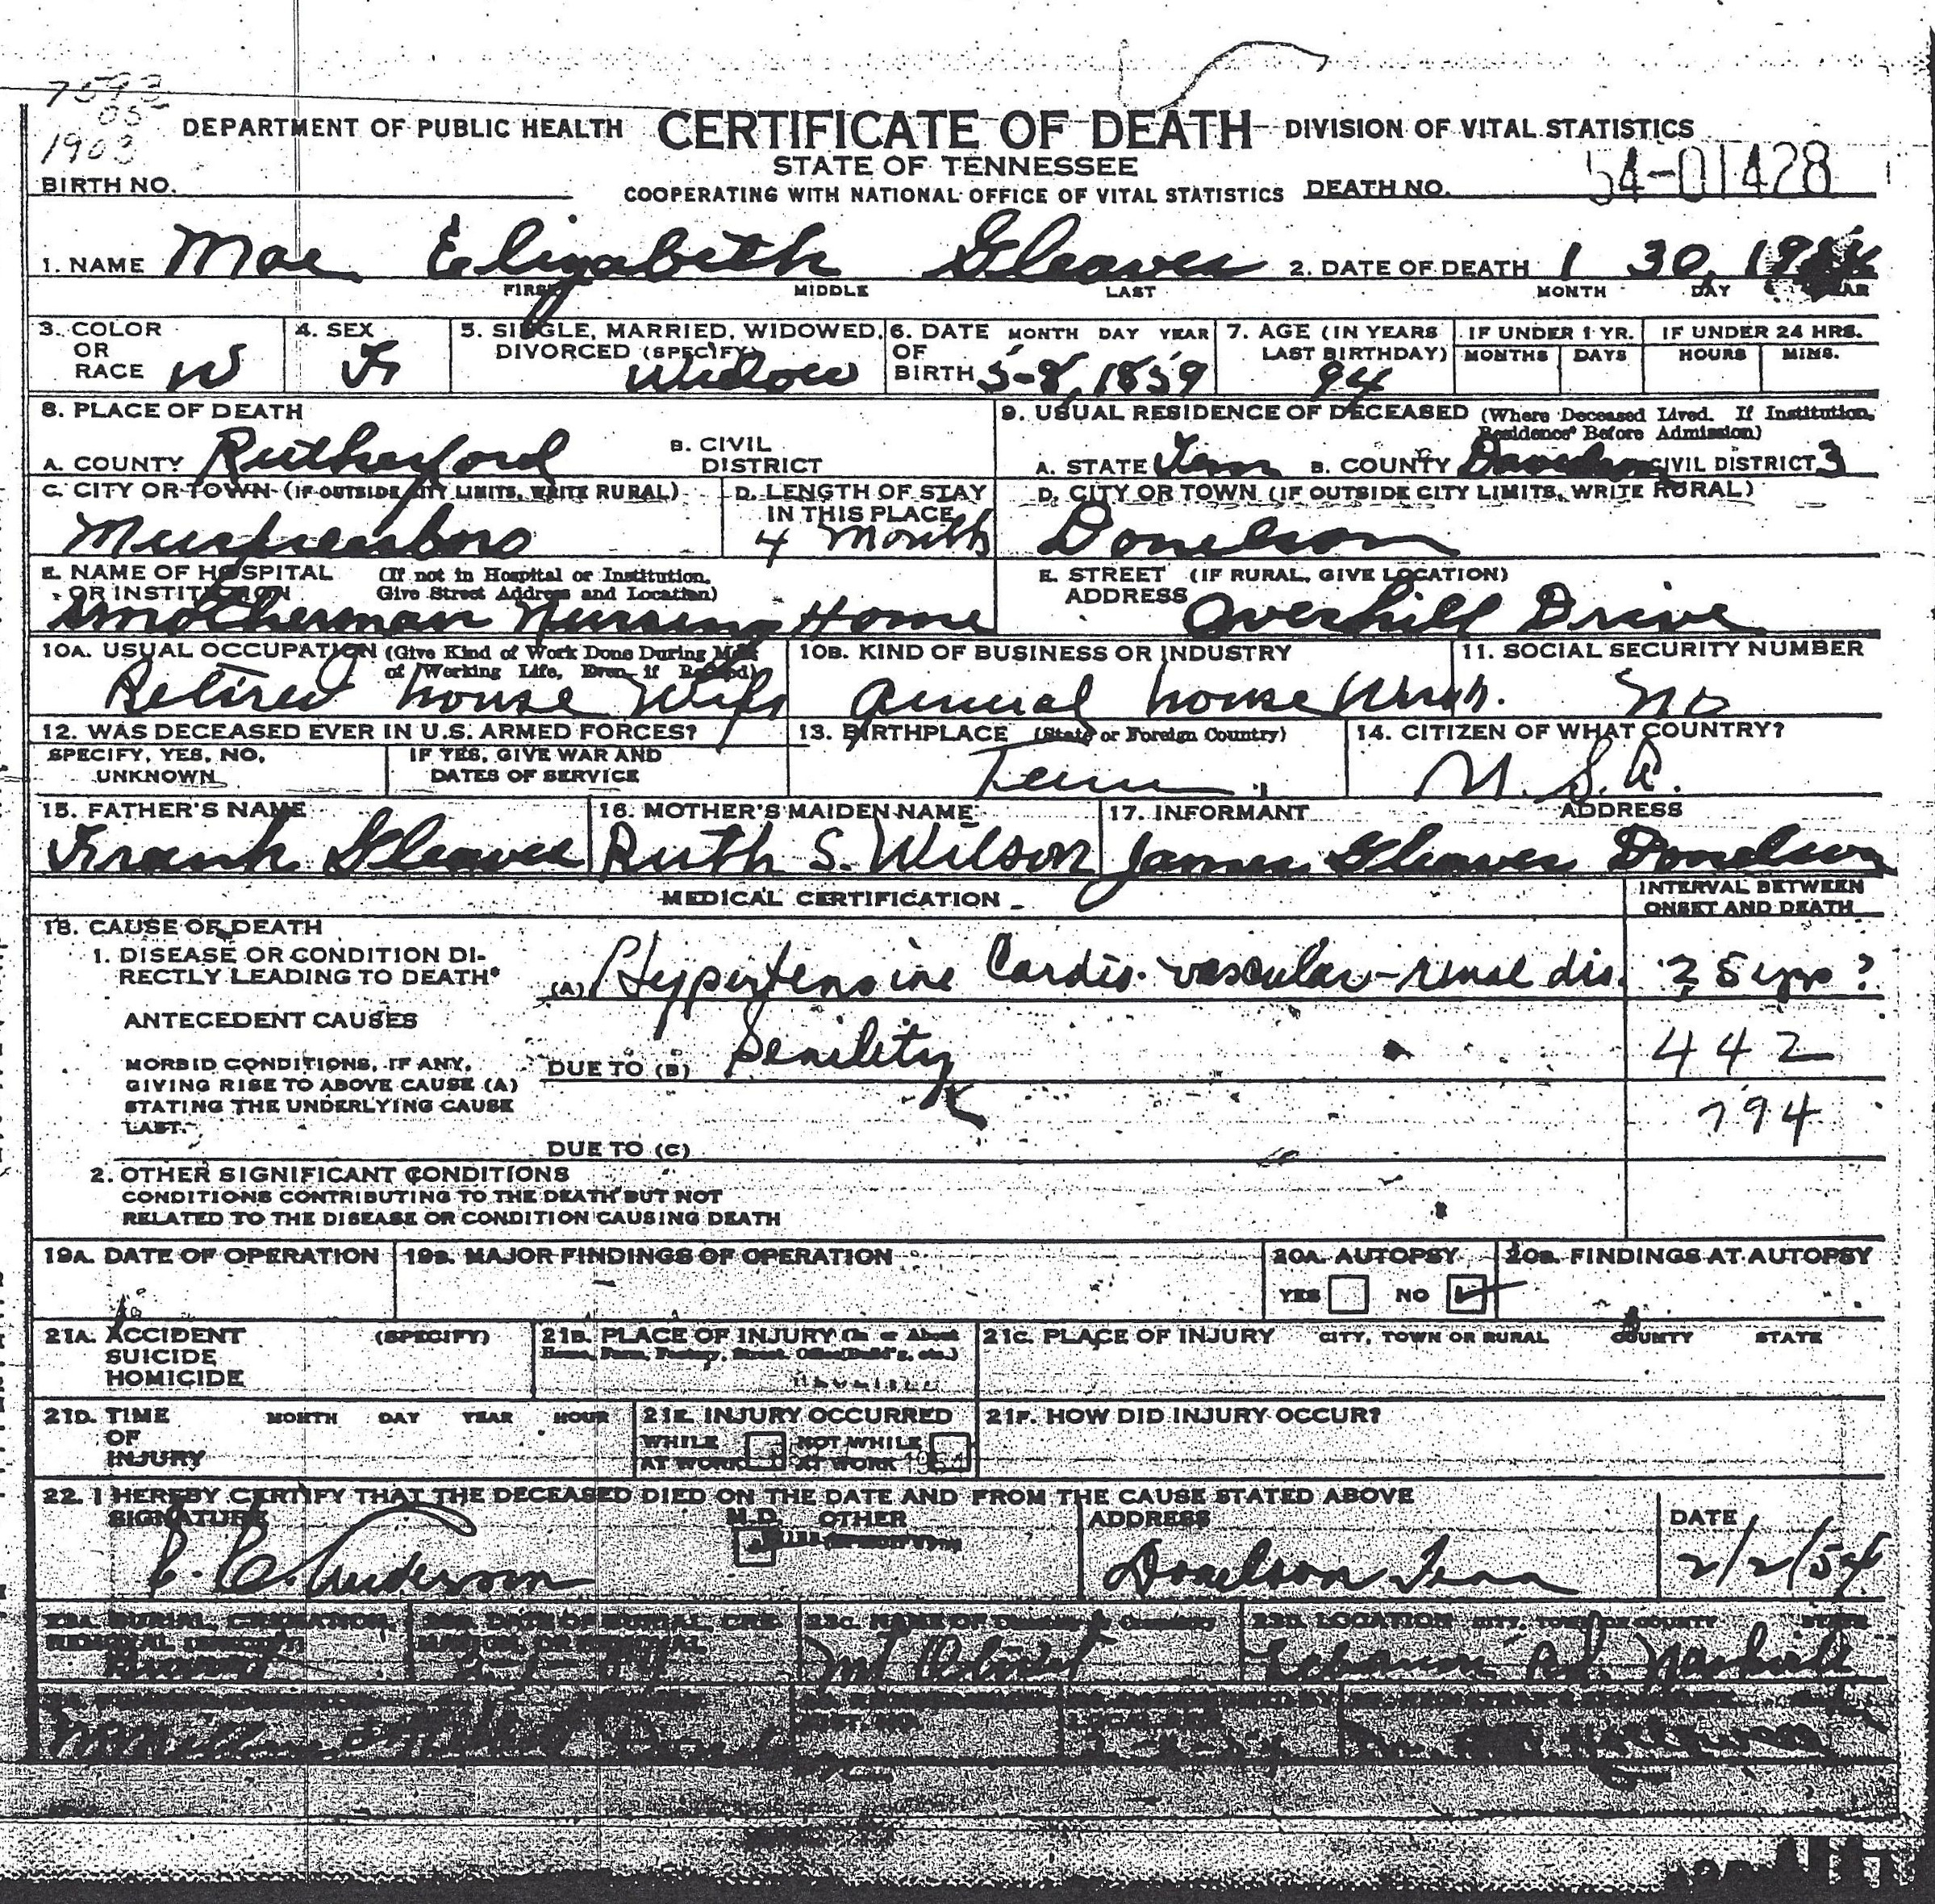 7593
05
1903
DEPARTMENT OF PUBLIC HEALTH CERTIFICATE OF DEATH DIVISION OF VITAL STATISTICS
STATE OF TENNESSEE
COOPERATING WITH NATIONAL OFFICE OF VITAL STATISTICS
BIRTH NO. DEATH NO. 54-01428
1. NAME Mae Elizabeth Gleaves 2. DATE OF DEATH 1 30, 1954
FIRST MIDDLE LAST MONTH DAY YEAR
3. COLOR OR RACE W
4. SEX F
5. SINGLE, MARRIED, WIDOWED, DIVORCED (SPECIFY) Widow
6. DATE OF BIRTH MONTH DAY YEAR 5-8, 1859
7. AGE (IN YEARS LAST BIRTHDAY) 94
IF UNDER 1 YR. MONTHS DAYS
IF UNDER 24 HRS. HOURS MINS.
8. PLACE OF DEATH
A. COUNTY Rutherford B. CIVIL DISTRICT
9. USUAL RESIDENCE OF DECEASED (Where Deceased Lived. If Institution, Residence Before Admission)
A. STATE Tenn B. COUNTY Davidson CIVIL DISTRICT 3
C. CITY OR TOWN (IF OUTSIDE CITY LIMITS, WRITE RURAL)
Murfreesboro
D. LENGTH OF STAY IN THIS PLACE
4 Month
D. CITY OR TOWN (IF OUTSIDE CITY LIMITS, WRITE RURAL)
Donelson
E. NAME OF HOSPITAL OR INSTITUTION (If not in Hospital or Institution, Give Street Address and Location)
Smotherman Nursing Home
E. STREET ADDRESS (IF RURAL, GIVE LOCATION)
Overhill Drive
10A. USUAL OCCUPATION (Give Kind of Work Done During Most of Working Life, Even if Retired)
Retired house Wife
10B. KIND OF BUSINESS OR INDUSTRY
house
11. SOCIAL SECURITY NUMBER
No
12. WAS DECEASED EVER IN U.S. ARMED FORCES?
SPECIFY, YES, NO, UNKNOWN
IF YES, GIVE WAR AND DATES OF SERVICE
13. BIRTHPLACE (State or Foreign Country)
Tenn.
14. CITIZEN OF WHAT COUNTRY?
U.S.A.
15. FATHER'S NAME
Frank Gleaves
16. MOTHER'S MAIDEN NAME
Ruth S. Wilson
17. INFORMANT ADDRESS
James Gleaves Donelson
MEDICAL CERTIFICATION
INTERVAL BETWEEN ONSET AND DEATH
18. CAUSE OF DEATH
1. DISEASE OR CONDITION DIRECTLY LEADING TO DEATH*
(A) Hypertensive Cardio-vascular-renal dis. 25 yrs?
ANTECEDENT CAUSES
MORBID CONDITIONS, IF ANY, GIVING RISE TO ABOVE CAUSE (A) STATING THE UNDERLYING CAUSE LAST.
DUE TO (B) Senility 442
794
DUE TO (C)
2. OTHER SIGNIFICANT CONDITIONS
CONDITIONS CONTRIBUTING TO THE DEATH BUT NOT
RELATED TO THE DISEASE OR CONDITION CAUSING DEATH
19A. DATE OF OPERATION
19B. MAJOR FINDINGS OF OPERATION
20A. AUTOPSY
YES NO
20B. FINDINGS AT AUTOPSY
21A. ACCIDENT (SPECIFY)
SUICIDE
HOMICIDE
21B. PLACE OF INJURY (In or About Home, Farm, Factory, Street, Office Build'g, etc.)
21C. PLACE OF INJURY CITY, TOWN OR RURAL COUNTY STATE
21D. TIME OF INJURY MONTH DAY YEAR HOUR
21E. INJURY OCCURRED
WHILE AT WORK NOT WHILE AT WORK
21F. HOW DID INJURY OCCUR?
22. I HEREBY CERTIFY THAT THE DECEASED DIED ON THE DATE AND FROM THE CAUSE STATED ABOVE
SIGNATURE M.D. OTHER ADDRESS DATE
Anderson Donelson Tenn 2/2/54
Burial Mt Olivet Nashville